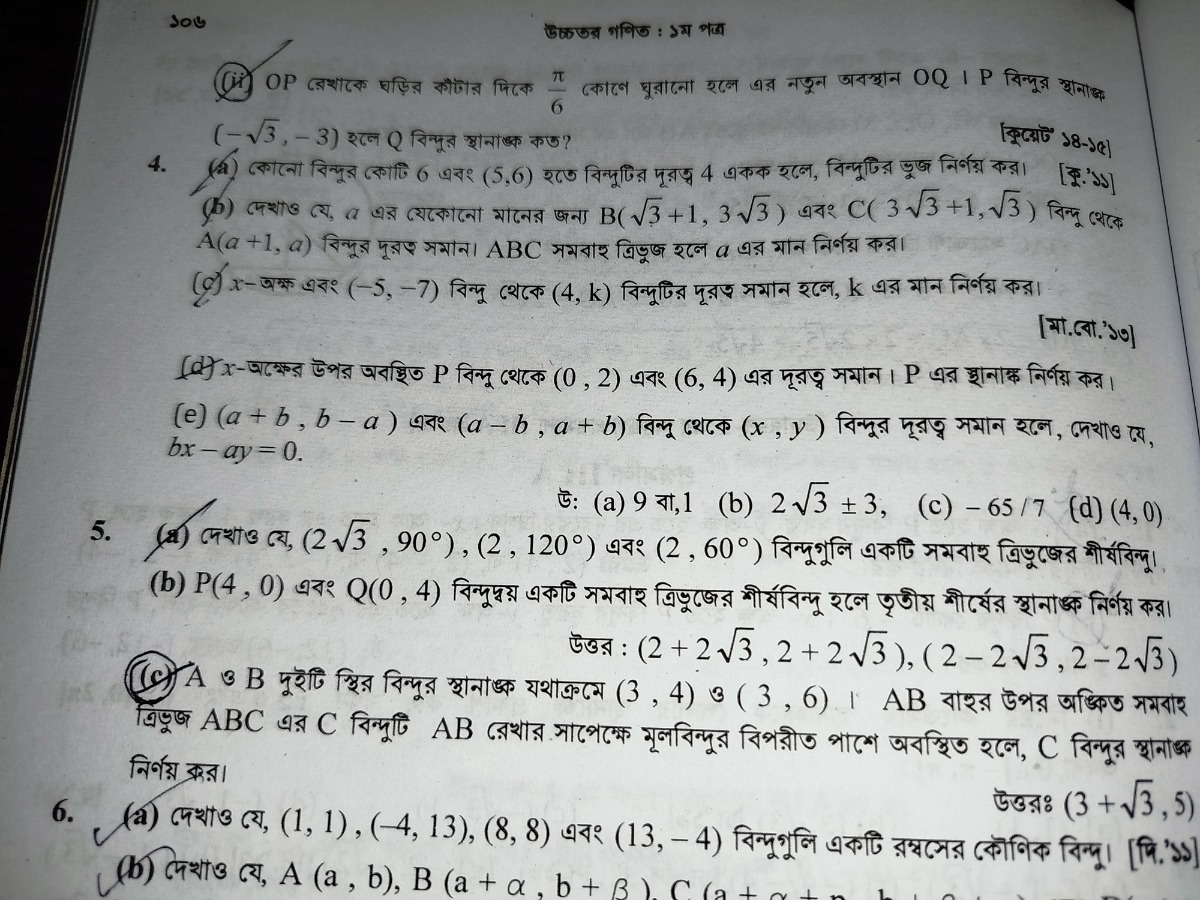 ১০৬
উচ্চতর গণিত : ১ম পত্র
(ii) OP রেখাকে ঘড়ির কাঁটার দিকে π/6 কোণে ঘুরানো হলে এর নতুন অবস্থান OQ । P বিন্দুর স্থানাঙ্ক
(−√3, − 3) হলে Q বিন্দুর স্থানাঙ্ক কত? [কুয়েট ১৪-১৫]
4. (a) কোনো বিন্দুর কোটি 6 এবং (5,6) হতে বিন্দুটির দূরত্ব 4 একক হলে, বিন্দুটির ভুজ নির্ণয় কর। [কু.'১১]
(b) দেখাও যে, a এর যেকোনো মানের জন্য B(√3+1, 3√3) এবং C( 3√3+1, √3) বিন্দু থেকে
A(a +1, a) বিন্দুর দূরত্ব সমান। ABC সমবাহু ত্রিভুজ হলে a এর মান নির্ণয় কর।
(c) x-অক্ষ এবং (−5, −7) বিন্দু থেকে (4, k) বিন্দুটির দূরত্ব সমান হলে, k এর মান নির্ণয় কর।
[মা.বো.'১৩]
(d) x-অক্ষের উপর অবস্থিত P বিন্দু থেকে (0 , 2) এবং (6, 4) এর দূরত্ব সমান । P এর স্থানাঙ্ক নির্ণয় কর ।
(e) (a + b , b − a ) এবং (a − b , a + b) বিন্দু থেকে (x , y ) বিন্দুর দূরত্ব সমান হলে , দেখাও যে,
bx − ay = 0.
উ: (a) 9 বা,1 (b) 2√3 ± 3, (c) − 65 / 7 (d) (4, 0)
5. (a) দেখাও যে, (2√3 , 90°) , (2 , 120°) এবং (2 , 60°) বিন্দুগুলি একটি সমবাহু ত্রিভুজের শীর্ষবিন্দু।
(b) P(4 , 0) এবং Q(0 , 4) বিন্দুদ্বয় একটি সমবাহু ত্রিভুজের শীর্ষবিন্দু হলে তৃতীয় শীর্ষের স্থানাঙ্ক নির্ণয় কর।
উত্তর : (2 + 2√3 , 2 + 2√3 ), ( 2 − 2√3 , 2 − 2√3 )
(c) A ও B দুইটি স্থির বিন্দুর স্থানাঙ্ক যথাক্রমে (3 , 4) ও ( 3 , 6) । AB বাহুর উপর অঙ্কিত সমবাহু
ত্রিভুজ ABC এর C বিন্দুটি AB রেখার সাপেক্ষে মূলবিন্দুর বিপরীত পাশে অবস্থিত হলে, C বিন্দুর স্থানাঙ্ক
নির্ণয় কর।
উত্তরঃ (3 + √3 , 5)
6. (a) দেখাও যে, (1, 1) , (−4, 13), (8, 8) এবং (13, − 4) বিন্দুগুলি একটি রম্বসের কৌণিক বিন্দু। [দি.'১১]
(b) দেখাও যে, A (a , b), B (a + α , b + β ), C (a + α +